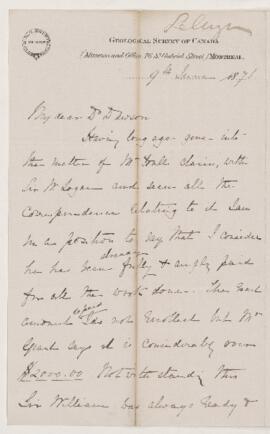 Selwyn
GEOLOGICAL SURVEY OF CANADA
(Museum and Office, 76 St. Gabriel Street,) MONTREAL.
9th 1871
My dear Dr Dawson
Having long ago gone into
the matter of Mr Hall claim, with
Sir W Logan and seen all the
Correspondence relating to it I am
in a position to say that I consider
he has been fully & amply paid
already
for all the work done. The exact
amount I do not recollect but Mr
Grant says it is considerably over
$2000.00 Notwithstanding this
Sir William was always ready &